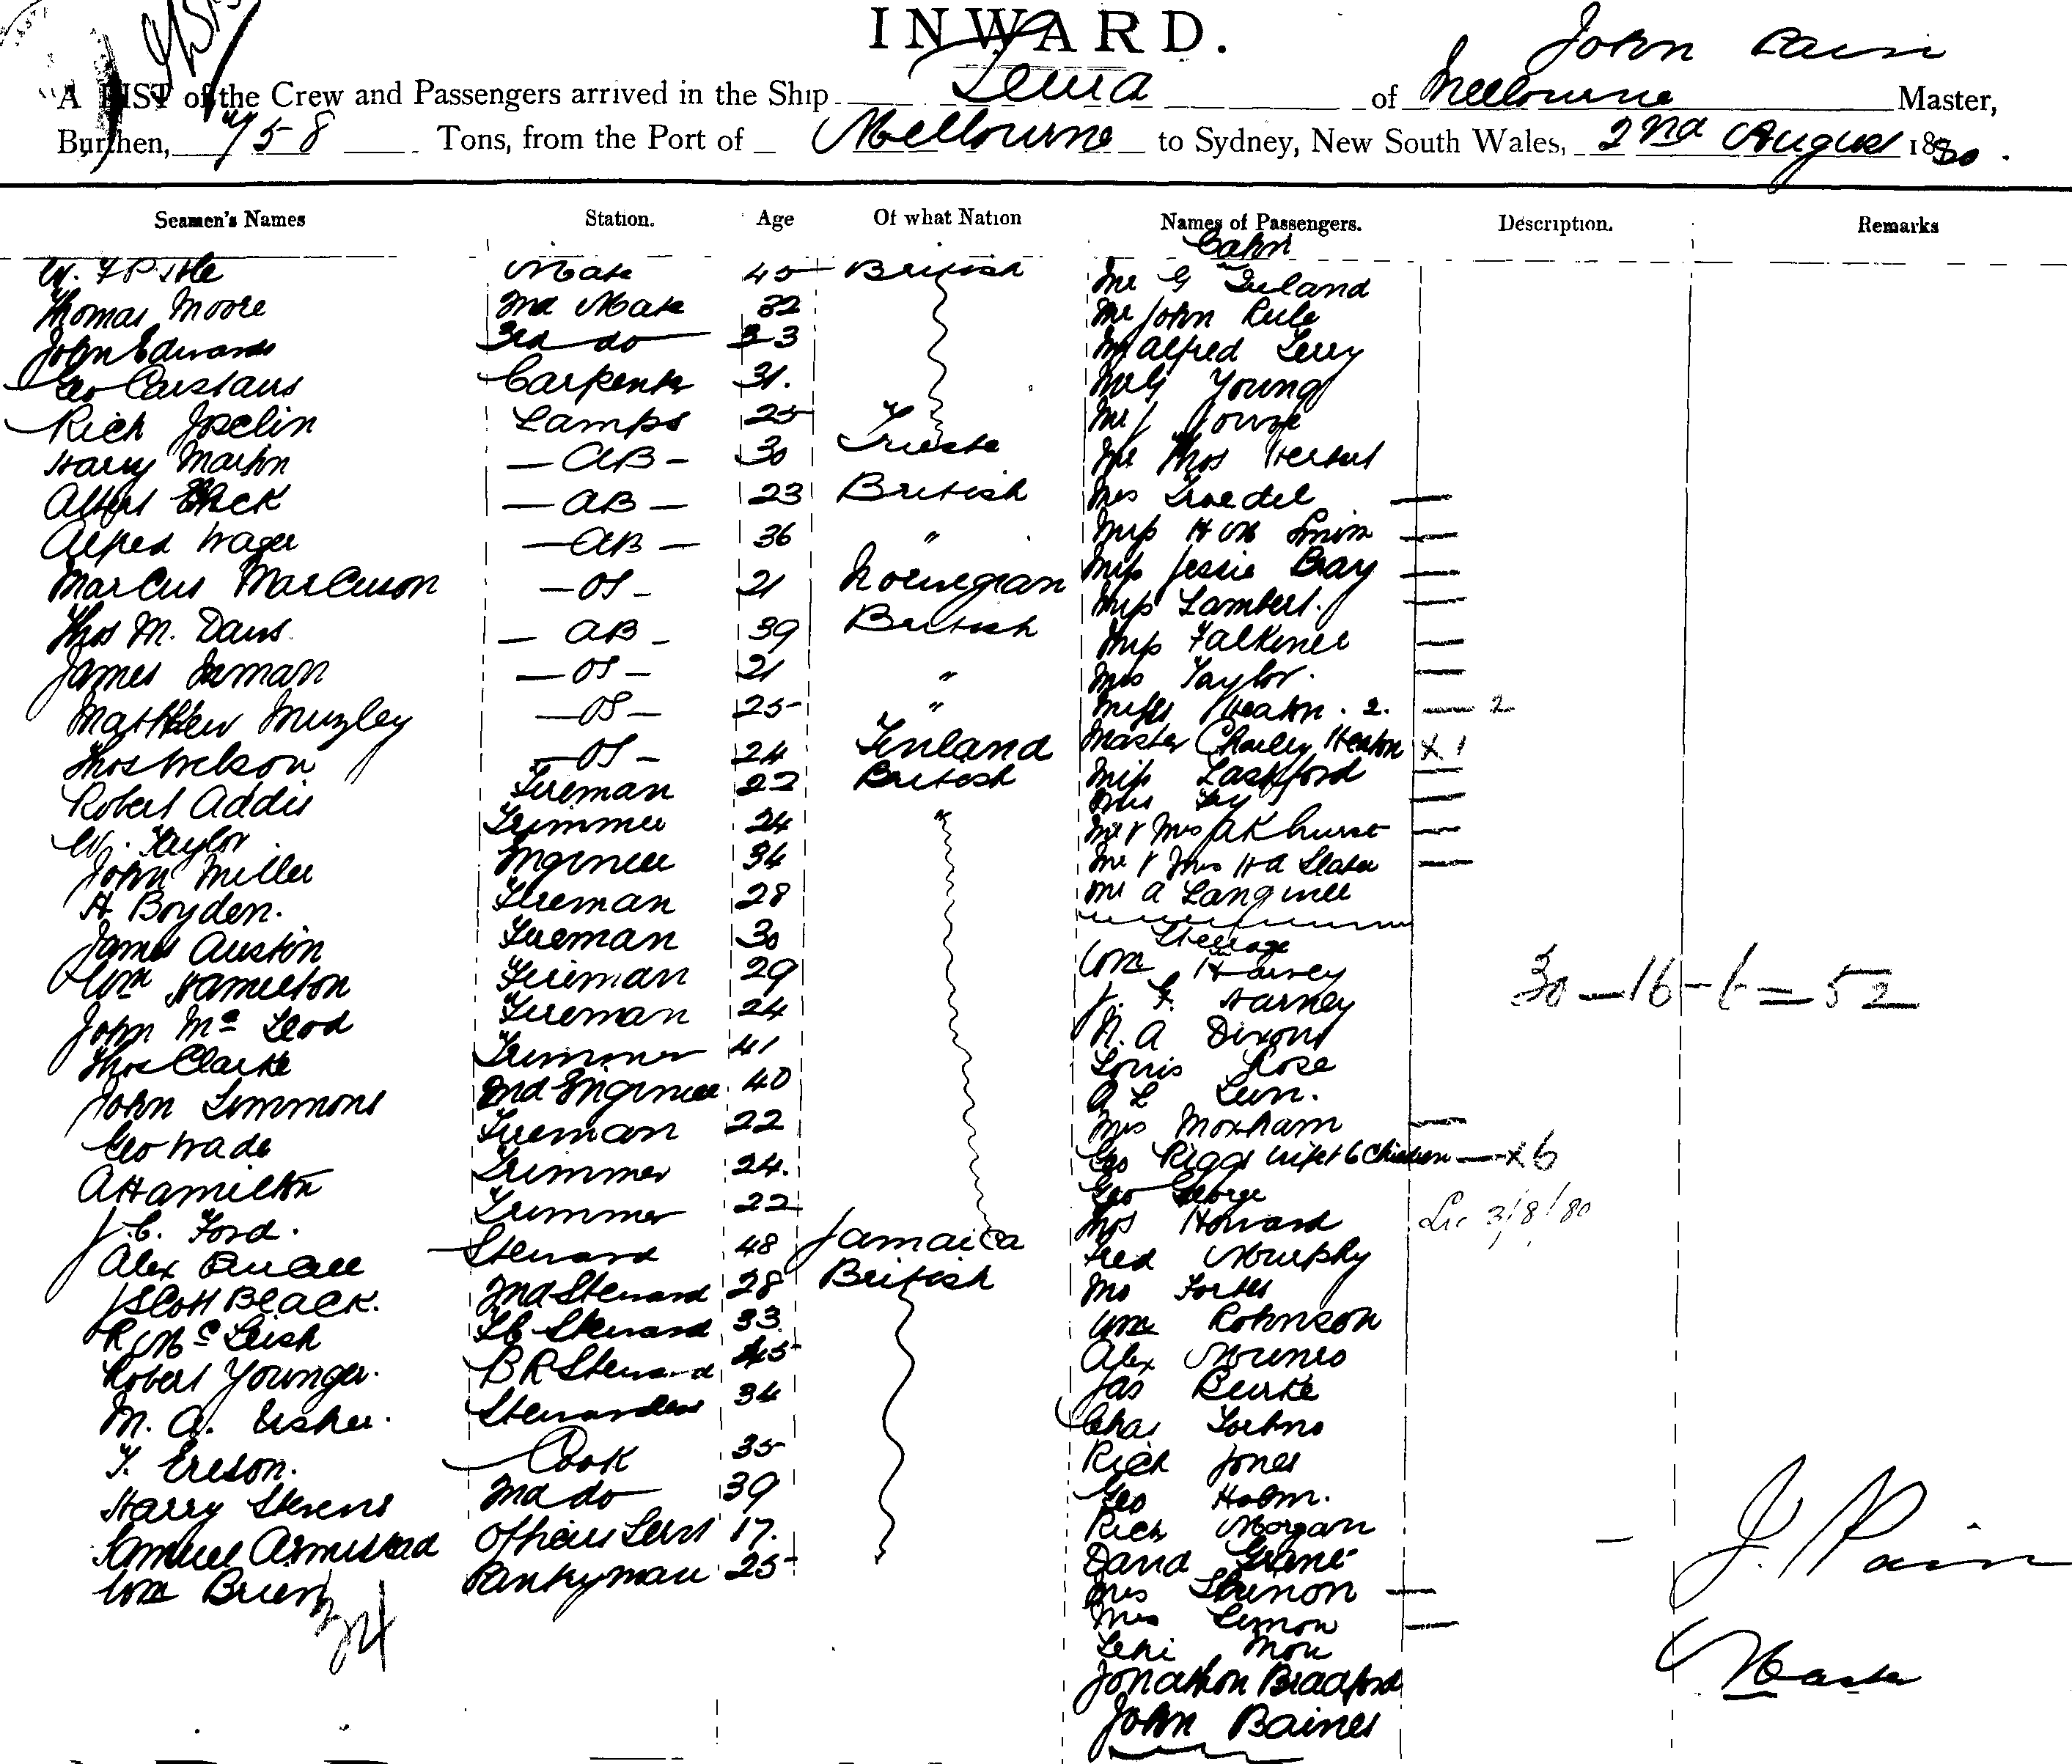 INWARD.
John Pain
A LIST of the Crew and Passengers arrived in the Ship of Melbourne Master,
Burthen, 758 Tons, from the Port of Melbourne to Sydney, New South Wales, 2nd August 1880.
Seamen's Names Station. Age Of what Nation Names of Passengers. Description. Remarks
Cabin
Mate 45 British Mr G Ireland
Thomas Moore 2nd Mate 32 Mr John Rule
John Edwards 3rd do 33 Mr Alfred Terry
Geo Carstairs Carpenter 31. Mr G Young
Rich Joselin Lamps 25 Mr J
Harry Martin — AB — 30 Trieste Mr Thos Herbert
Albert — AB — 23 British Mrs Troedel —
Alfred Wager — AB — 36 " Miss —
Marcus Marcuson — OS — 21 Norwegian Miss Jessie Bray —
Thos M. Davis — AB — 39 British Miss Lambert. —
James Inman — OS — 21 " Miss Falkiner —
Mrs Taylor. —
Matthew Muzley — OS — 25 " Misses Heaton. 2. — 2
Thos Nelson — OS — 24 Finland Master Charley Heaton x 1
Robert Addis Fireman 22 British Miss Lashford —
Mrs —
W. Taylor Trimmer 24 " Mr & Mrs Akhurst —
John Miller Engineer 34 Mr & Mrs H A Slater —
H Boyden. Fireman 28 Mr A Langwill
James Austin Fireman 30 Steerage
Wm Hamilton Fireman 29 Wm Harvey
John McLeod Fireman 24 J. F. Harney
Thos Clarke Trimmer 41 N. A Dixon
30 — 16 — 6 = 52
John Simmons 2nd Engineer 40 Louis Rose
A L
Geo Wade Fireman 22 Mrs Moxham —
A Hamilton Trimmer 24. Geo Riggs wife & 6 Children — x 6
J. C. Ford. Trimmer 22 Geo George
Thos Howard 3/8/80
Alex Steward 48 Jamaica Fred Murphy
J Scott Black. 2nd Steward 28 British Mrs Forbes
R McLeish Steward 33 Wm Robinson
Robert Younger. B R Steward 45 Alex Munro
M. A. Usher. Stewardess 34 Jas Burke
Chas
T. Ereson. Cook 35 Rich Jones
Harry Stevens 2nd do 39 Geo Holm.
Samuel Armistead Officers Servt 17. Rich Morgan
Wm Brien Pantryman 25 David
34
Mrs —
Mrs Lemon —
Jonathon Bradford
John Baines
J. Pain
Master